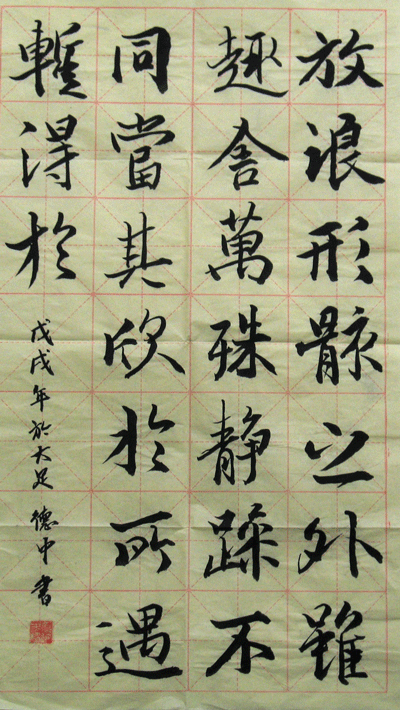 放浪形骸之外雖
趣舍萬殊静躁不
同當其欣於所遇
暫得於
戊戌年於大足 德中書